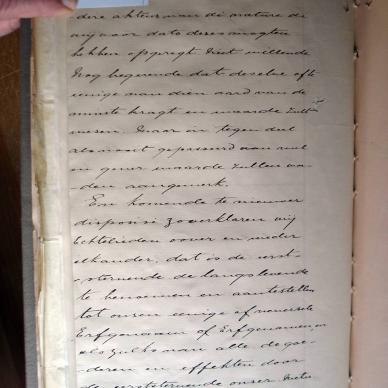 dere akten van die nature die
wij voor dato deeses mogten
hebben opgeregt niet willende
nog begeerende dat deselve ofte
eenige van dien aard van de
minste kragt en waarde zullen
wesen. Maar in tegen deel
als nooit gepasseerd van nul
en geener waarde zullen wor-
den aangemerk.
En komende te nieuwer
disposisi zoo verklaren wij
Echtelieden over en weder
elkander, dat is de eerst-
stervende de langslevende
te benoemen en aantestellen
tot onsen eenige universele
Erfgenaam of Erfgenamen, en
als zulks van alle de goe-
deren en effekten door
de eerststervende onser